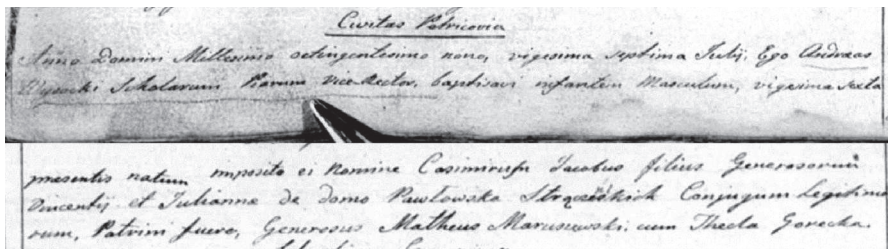 Civitas Petricovia
Anno Domini Millesimo octingentesimo nono, vigesima septima Julij, Ego Andreas
Wysocki Scholarum Piarum Vice-Rector, baptisavi infantem Masculum, vigesima sexta
praesentis natum imposito ei Nomine Casimirus Jacobus filius Generosorum
Vincentij et Julianna de domo Pawłowska Conjugum Legitimo
rum, Patrini fuere, Generosus Matheus Maruszewski, cum Thecla Gorecka.